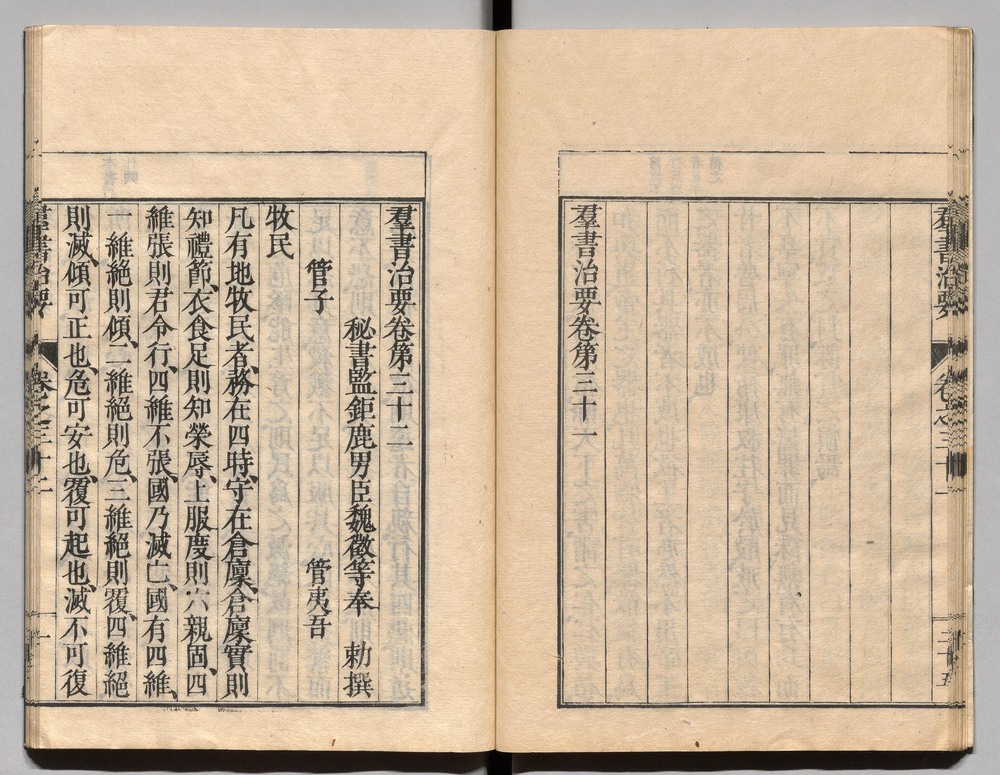 羣書治要 卷之三十一 二十五
羣書治要卷第三十一
羣書治要卷第三十二
秘書監鉅鹿男臣魏徵等奉 勅撰
管子 管夷吾
牧民
凡有地牧民者、務在四時、守在倉廩、倉廩實則
知禮節、衣食足則知榮辱、上服度則六親固、四
維張則君令行、四維不張、國乃滅亡、國有四維、
一維絕則傾、二維絕則危、三維絕則覆、四維絕
則滅、傾可正也、危可安也、覆可起也、滅不可復
羣書治要 卷之三十二 一